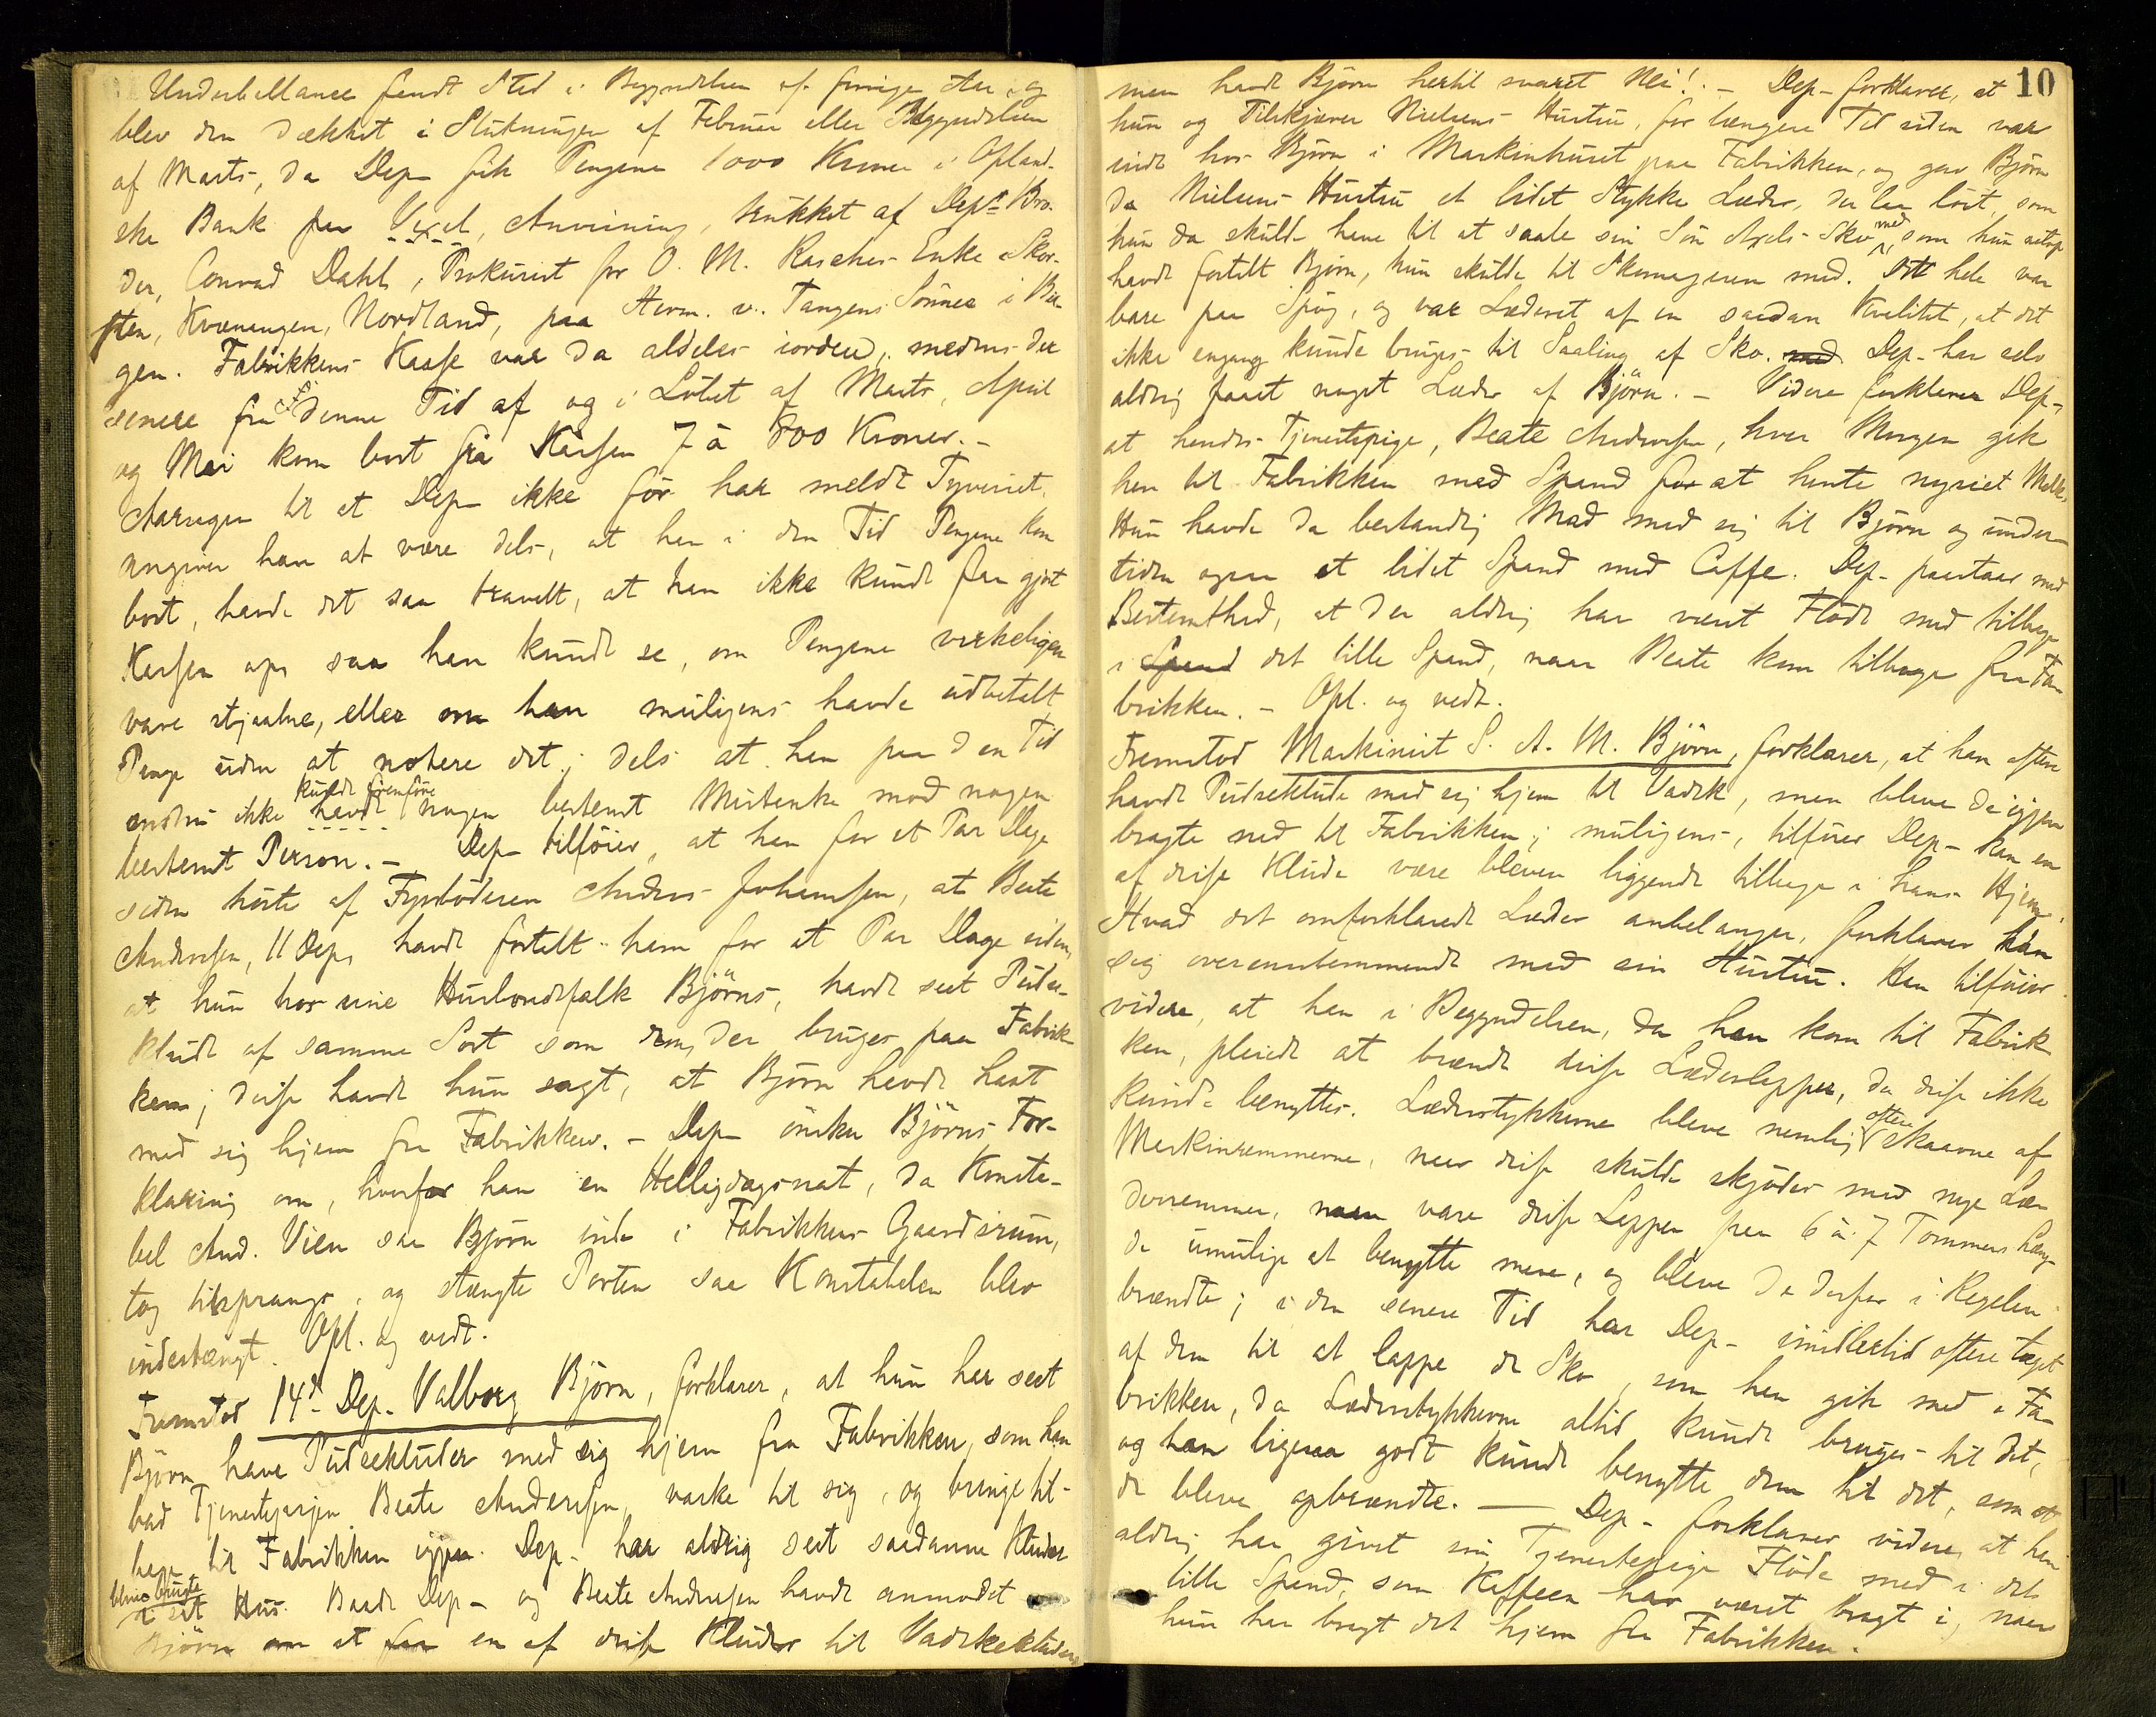 Underballance fandt Sted i Begyndelsen af forrige Aar, og
blev den dækket i Slutningen af Februar eller Begyndelsen
af Marts, da Dep. fik Pengene 1000 Kroner i Opland-
ske Bank paa Vexel, Anvisning, trukket af Dep.s Bro-
der, Conrad Dahl, Prokurist for O. M. Rasches Enke
Kvænangen, Nordland, paa Herm. v. Tangens Sönner i Ber-
gen. Fabrikkens Kasse var da aldeles iorden, medens der
senere fra denne Tid af og i Löbet af Marts, April
og Mai kom bort fra Kassen 7 à 800 Kroner. -
Aarsagen til at Dep. ikke för har meldt Tyveriet,
angiver han at være dels, at han i den Tid Pengene kom
bort, havde det saa travelt, at han ikke kunde faa gjort
Kassen op, saa han kunde se, om Pengene virkeligen
vare stjaalne, eller om han muligens havde udbetalt
Penge uden at notere det; dels at han paa den Tid
endnu ikke havde kunde fremföre nogen bestemt Mistanke mod nogen
bestemt Person. - Dep. tilföier, at han for et Par Dage
siden hörte af Fyrböderen Anders Johansen, at Beate
Andersen, 11 Dep., havde fortalt ham for et Par Dage siden,
at hun hos sine Husbondsfolk Björns, havde seet Pudse-
klude af samme Sort som dem, der bruges paa Fabrik-
ken; disse havde hun sagt, at Björn havde havt
med sig hjem fra Fabrikken. - Dep. önsker Björns For-
klaring om, hvorfor han en Helligdagsnat, da Konsta-
bel And. Vien saa Björn inde i Fabrikkens Gaardsrum,
tog tilsprangs, og stængte Porten saa Konstabelen blev
indestængt. Opl. og vedt.
Fremstod 14de Dep. Valborg Björn, forklarer, at hun har seet
Björn have Pudseklude med sig hjem fra Fabrikken, som han
bad Tjenestepigen Beate Andersen, vaske til sig, og bringe til-
bage til Fabrikken igjen. Dep. har aldrig seet saadanne Kluder
blive brugte i sit Hus. Baade Dep. og Beate Andersen havde anmodet
Björn om at faa en af disse Kluder til Vadskekluder,
10
men havde Björn hertil svaret Nei! - Dep. forklarer, at
hun og Tilskjærer Nielsens Hustru, for længere Tid siden var
inde hos Björn i Maskinhuset paa Fabrikken, og gav Björn
da Nielsens Hustru et lidet Stykke Læder, der laa löst, som
hun da skulde have til at saale sin Sön Axels Sko med, som hun netop
havde fortalt Björn, hun skulde til Skomageren med. Det hele var
bare paa Spög, og var Læderet af en saadan Kvalitet, at det
ikke engang kunde bruges til Saaling af Sko. med Dep. har selv
aldrig faaet noget Læder af Björn. - Videre forklarer Dep.,
at hendes Tjenestepige, Beate Andersen, hver Morgen gik
hen til Fabrikken med Spand for at hente nysiet Melk,
Hun havde da bestandig Mad med sig til Björn og under-
tiden ogsaa et lidet Spand med Caffe. Dep. paastaar med
Bestemthed, at der aldrig har været Flöde med tilbage
i Spand det lille Spand, naar Beate kom tilbage fra Fa-
brikken. - Opl. og vedt.
Fremstod Maskinist S. A. M. Björn, forklarer, at han oftere
havde Pudseklude med sig hjem til Vadsk, men bleve de igjen
bragte ned til Fabrikken; muligens, tilföier Dep. kan en
af disse Klude være bleven liggende tilbage i hans Hjem.
Hvad det omforklarede Læder anbelanger, forklarer han
sig overensstemmende med sin Hustru. Han tilföier
videre, at han i Begyndelsen, da han kom til Fabrik-
ken, pleiede at brænde disse Læderlapper, da disse ikke
kunde benyttes. Læderstykkerne bleve nemlig oftere skaarne af
Maskinremmerne, naar disse skulde skjödes med nye Læ-
derremmer, naar vare disse Lapper paa 6 à 7 Tommers Længde
da umulige at benytte mere, og bleve de derfor i Regelen
brændte; i den senere Tid har Dep. imidlertid oftere taget
af dem til at lappe de Sko, som han gik med i Fa-
brikken, da Læderstykkerne altid kunde bruges til det,
og han ligesaa godt kunde benytte dem til det, som at
de bleve opbrændte. — Dep. forklarer videre, at han
aldrig har givet sin Tjenestepige Flöde med i det
lille Spand, som Kaffeen har været bragt i, naar
hun har bragt det hjem fra Fabrikken.